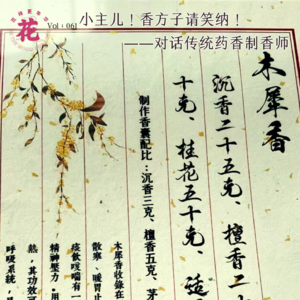 花
Vol:061
小主儿！香方子请笑纳！
——对话传统药香制香师
木犀香
沉香二十五克、檀香二
十克、桂花五十克、适
制作香囊配比：沉香三克、檀香五克、茅
木犀香收録在
散寒、暖胃止
痰飲喘咳有一
精神壓力，用
熱，其功效可
呼吸系統，